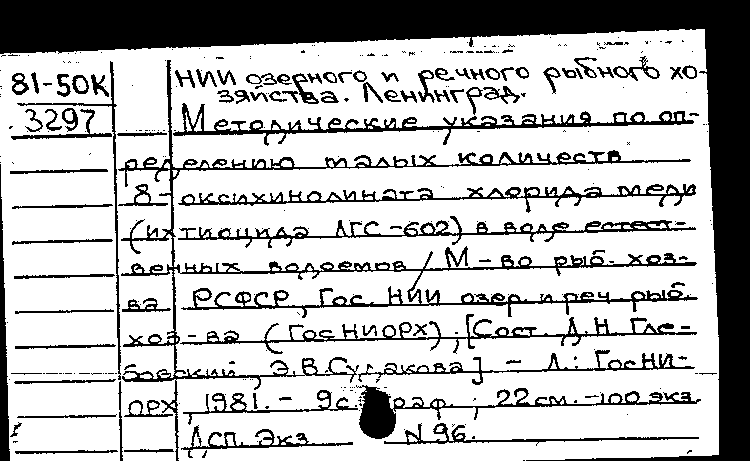 81-50К НИИ озерного и речного рыбного хо-
зяйства. Ленинград.
3297 Методические указания по оп-
ределению малых количеств
8-оксихинолината хлорида меди
(ихтиоцида ЛГС-602) в воде естест-
венных водоемов / М-во рыб. хоз-
ва РСФСР, Гос. НИИ озер. и реч. рыб.
хоз-ва (ГосНИОРХ); [Сост. Д.Н. Гле-
бовский, Э.В. Судакова] - Л.: ГосНИ-
ОРХ, 1981. - 9с. граф.; 22см. -100 экз.
Дсп. Экз N 96.